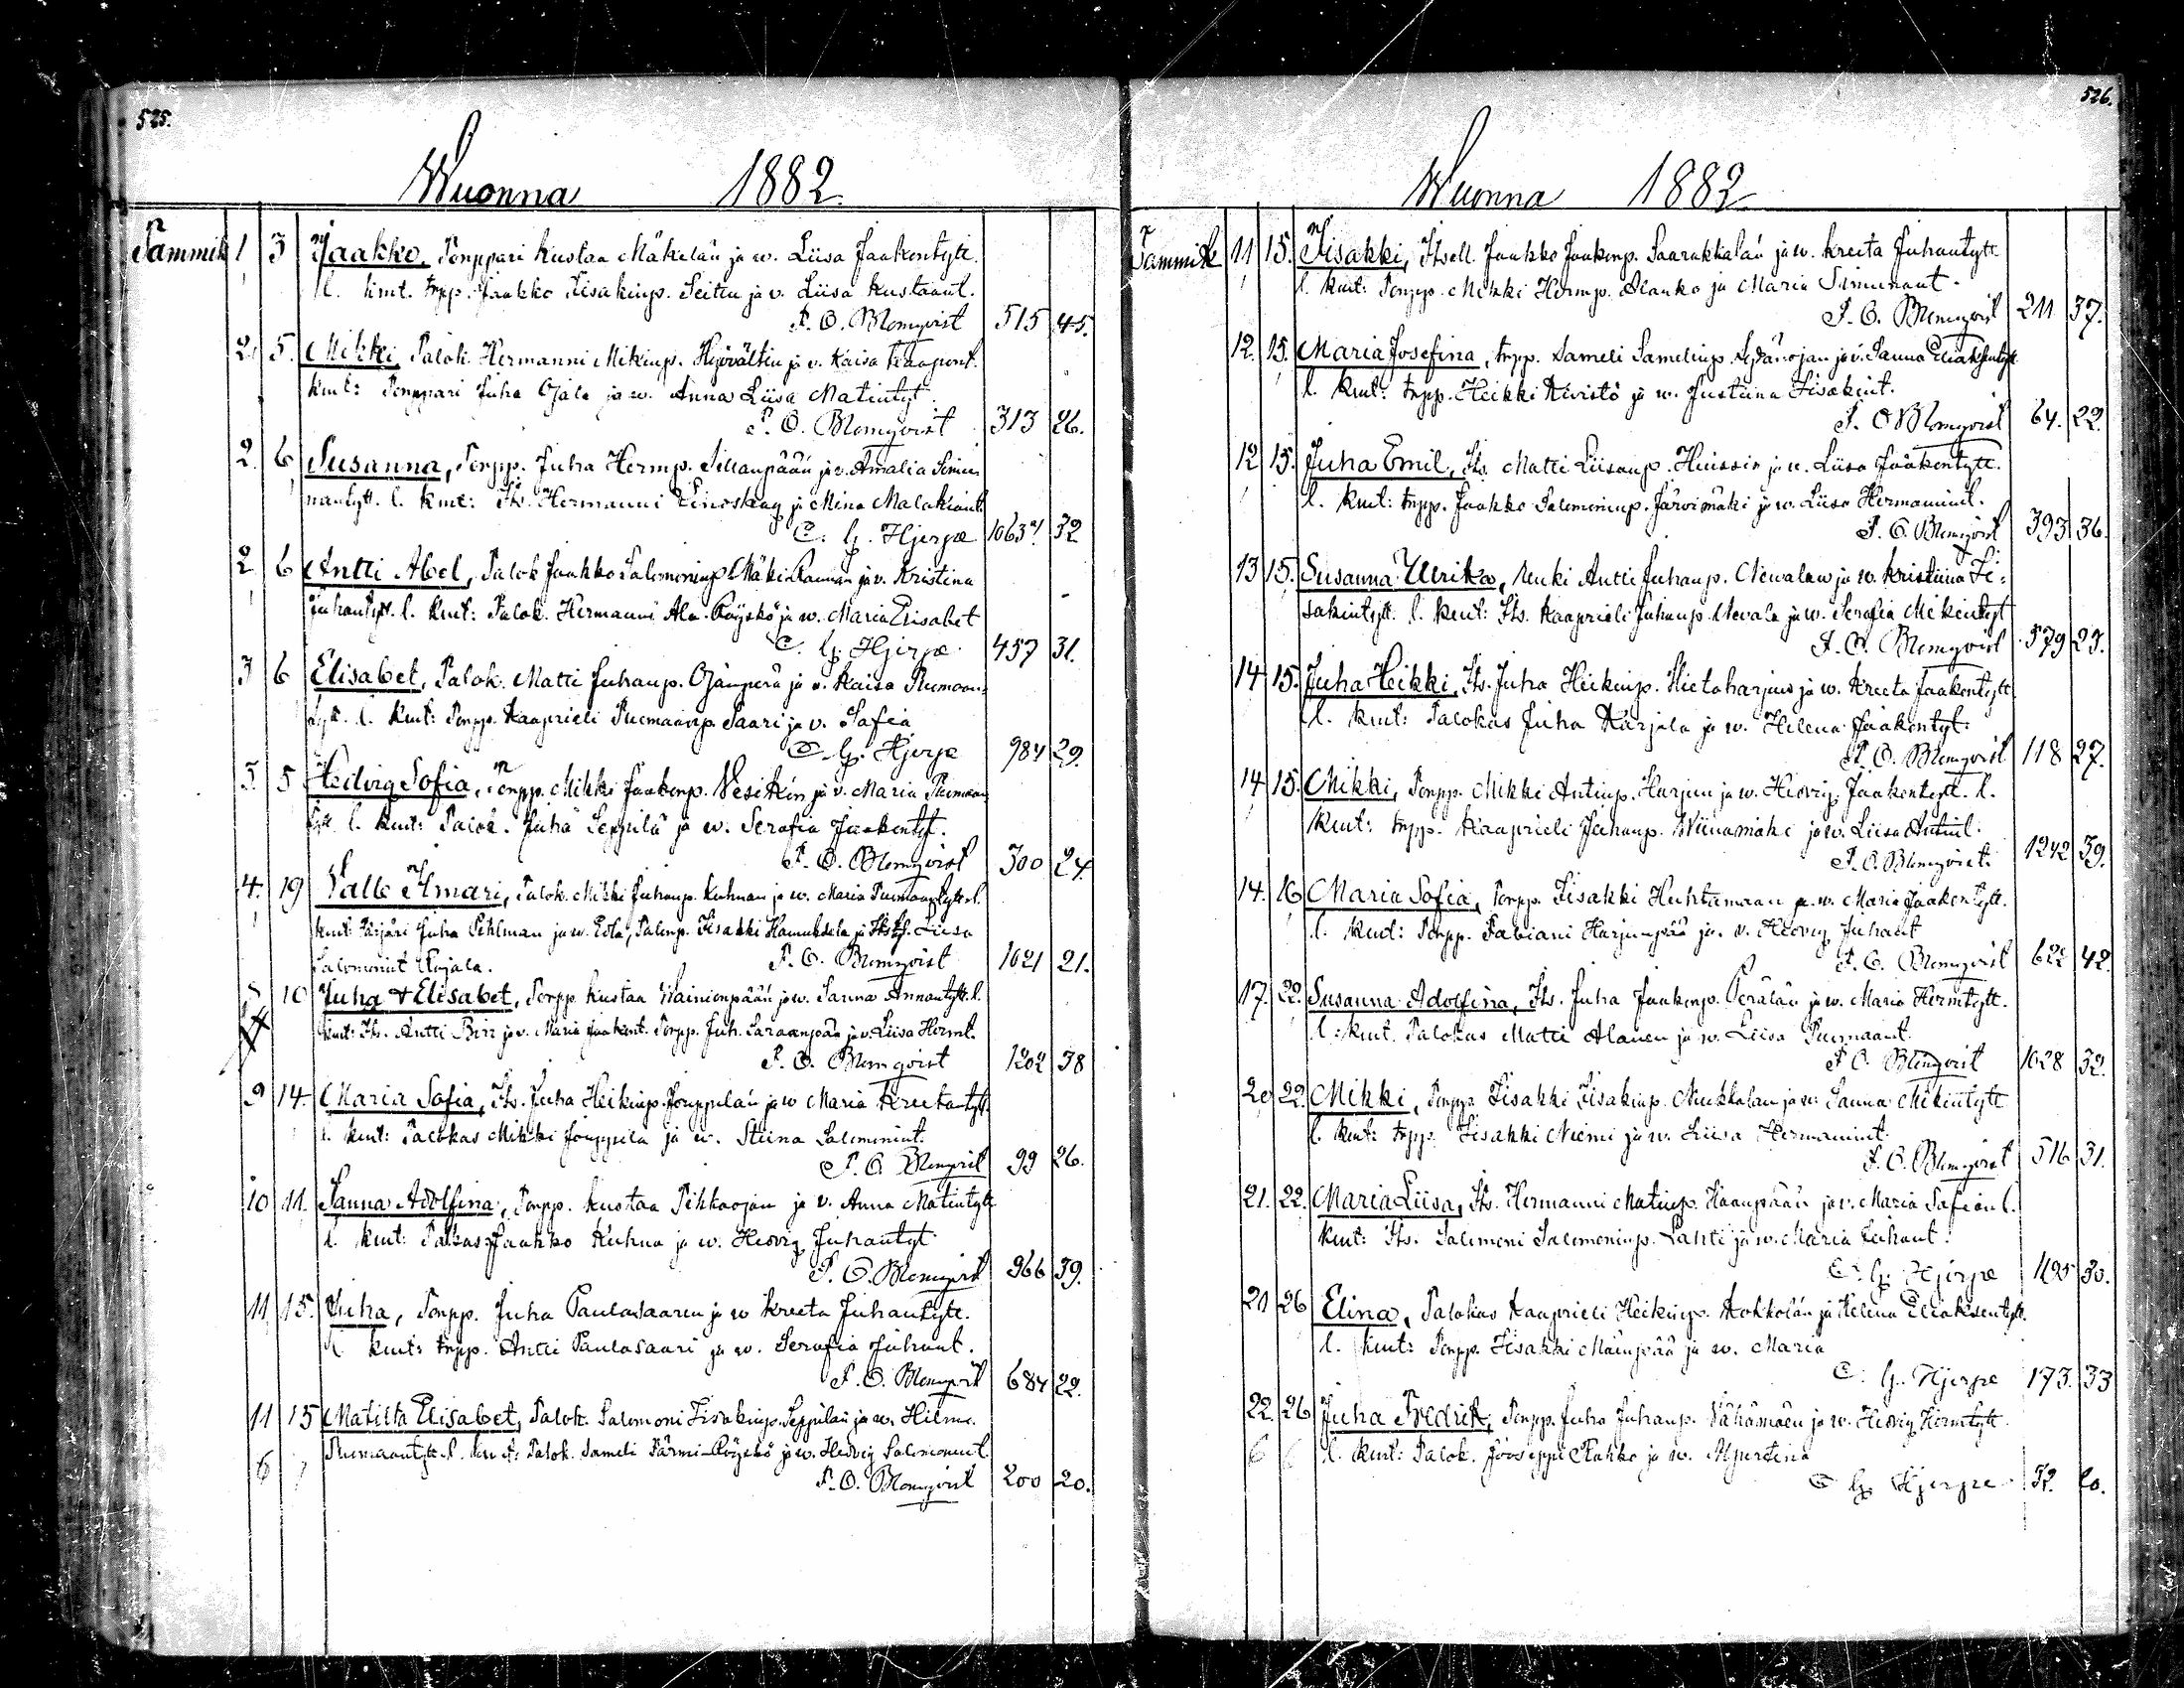 525.
Wuonna 1882.
Tammik 1 3 Jaakko, Torppari Kustaa Mäkelän ja w. Liisa Jaakontytt.
l. kmt. trpp. Jaakko Iisakinp. ja v. Liisa Kustaant.
F. O. Blomqvist 515 45.
2. 5. Mikki, Talok. Hermanni Mikinp. ja v. Kaisa
kmt: Torppari Juha Ojala ja w. Anna Liisa Matintyt.
F. O. Blomqvist 313 26.
2. 6 Susanna, Torpp. Juha Hermp. Sillanpään ja v. Amalia Simu-
nantytt. l. kmt: Its. Hermanni ja Mina Malakiant.
C. G. Hjerpe 1063 32
2 6 Antti Abel, Talok Jaakko Salomoninp. Mäki Rauman ja v. Kristina
Juhantytt. l. kmt: Talok. Hermanni Ala-Röyskö ja w. Maria Elisabet
C. G. Hjerpe 457 31.
3 6 Elisabet, Talok. Matti Juhanp. Ojanperä ja v. Kaisa Tuomaan-
tytt. l. kmt: Torpp. Kaaprieli Tuomaanp. Saari ja v. Safia
C. G. Hjerpe 984 29.
3. 5 Hedvig Sofia, Torpp. Mikki Jaakonp. Vesikin ja v. Maria Tuomaan
tytt. l. kmt: Talok. Juha Seppilä ja w. Serafia Jaakontyt.
F. O. Blomqvist 300 24.
4. 19 Kalle Ilmari, Talok. Mikki Juhanp. Kuhnan ja w. Maria Tuomaantytt. l.
kmt: Juha Pihlman ja w. Talonp. Iisakki Hannuksela ja Liisa
Salomonint Rajala. F. O. Blomqvist 1021 21.
5 10 Juha & Elisabet, Torpp. Kustaa Wainionpään ja w. Sanna Annantytt. l.
kmt: Its. Antti ja v. Maria Jaakont. Torpp. Juh. Saraanpää ja v. Liisa Hermt.
F. O. Blomqvist 1202 38
9 14. Maria Sofia, Its. Juha Heikinp. Jouppilan ja w Maria Kreetantytt.
l. kmt: Talokas Mikki Jouppila ja w. Stiina Salomonint.
F. O. Blomqvist 99 26.
10 11. Sanna Adolfina, Torpp. Kustaa Pihkaojan ja v. Anna Matintytt
l. kmt: Talokas Jaakko Kuhna ja w. Hedvig Juhantyt.
F. O. Blomqvist 966 39.
11 15. Juha, Torpp. Juha Paulasaaren ja w Kreeta Juhantytt.
l. kmt: trpp. Antti Paulasaari ja w. Serafia Juhant.
F. O. Blomqvist 684 22.
11 15 Matilta Elisabet, Talok. Salomoni Iisakinp. Seppilän ja w. Hilma
Tuomaantytt. l. kmt: Talok. Sameli Röyskö ja w. Hedvig Salomonint.
6 7 F. O. Blomqvist 200 20.
526.
Wuonna 1882
Tammik 11 15. Iisakki, Itsell. Jaakko Jaakonp. Saarukkalan ja w. Kreeta Juhantytt
l. kmt: Torpp. Mikki Hermp. Alanko ja Maria Simunant.
F. O. Blomqvist 211 37.
12. 15. Maria Josefina, trpp. Sameli Samelinp. Sydänojan ja v. Sanna Eliaksentytt
l. kmt: trpp. Heikki Kivistö ja w. Justiina Iisakint.
F. O Blomqvist 64. 22.
12 15. Juha Emil, Its. Matti Liisanp. Huissin ja w. Liisa Jaakontytt.
l. kmt: trpp. Jaakko Salomoninp. Järvimäki ja w. Liisa Hermannint.
F. O. Blomqvist 393 36.
13 15. Susanna Ulrika, Antti Juhanp. Newalan ja w. Kristiina Ii-
sakintytt. l. kmt: Its. Kaaprieli Juhanp. Nevala ja w. Serafia Mikintyt
F. O. Blomqvist 579 23.
14 15. Juha Heikki, Its. Juha Heikinp. Hietaharjun ja w. Kreeta Jaakontytt
l. kmt: Talokas Juha Karjala ja w. Helena Jaakontyt.
F. O. Blomqvist 118 27.
14 15. Mikki, Torpp. Mikki Antinp. Harjun ja w. Hedvig Jaakontytt. l.
kmt: trpp. Kaaprieli Juhanp. Wiinamäki ja w. Liisa Antint.
F. O. Blomqvist. 1242 39.
14. 16 Maria Sofia, Torpp. Iisakki Huhtamaan ja w. Maria Jaakontytt.
l. kmt: Torpp. Fabiani Harjunpää ja v. Hedvig Juhant
F. O. Blomqvist 622 42.
17. 22. Susanna Adolfina, Its. Juha Jaakonp. Perälän ja w. Maria Hermtytt.
l: kmt. Talokas Matti Alanen ja w. Liisa Tuomaant.
F O. Blomqvist 1028 32.
20 22. Mikki, Torpp. Iisakki Iisakinp. Niukkalan ja w. Sanna Mikintytt
l. kmt: trpp. Iisakki Niemi ja w. Liisa Hermannint.
F. O. Blomqvist 516 31.
21. 22. Maria Liisa, Its. Hermanni Matinp. Haanpään ja v. Maria Safiant.
kmt: Its. Salomoni Salomoninp. Lahti ja w. Maria Juhant.
C. G. Hjerpe 1195 30.
20 26 Elina, Talokas Kaaprieli Heikinp. Kokkolan ja Helena Eliaksentytt.
l. kmt: Torpp. Iisakki Mäenpää ja w. Maria
C. G. Hjerpe 173. 33
22 26 Juha Fredrik, Torpp. Juha Juhanp. Vähämäen ja w. Hedvig Hermtytt.
6 6 l. kmt: Talok. Jooseppi Rahko ja w. Alpertina
C G. Hjerpe 32. 20.